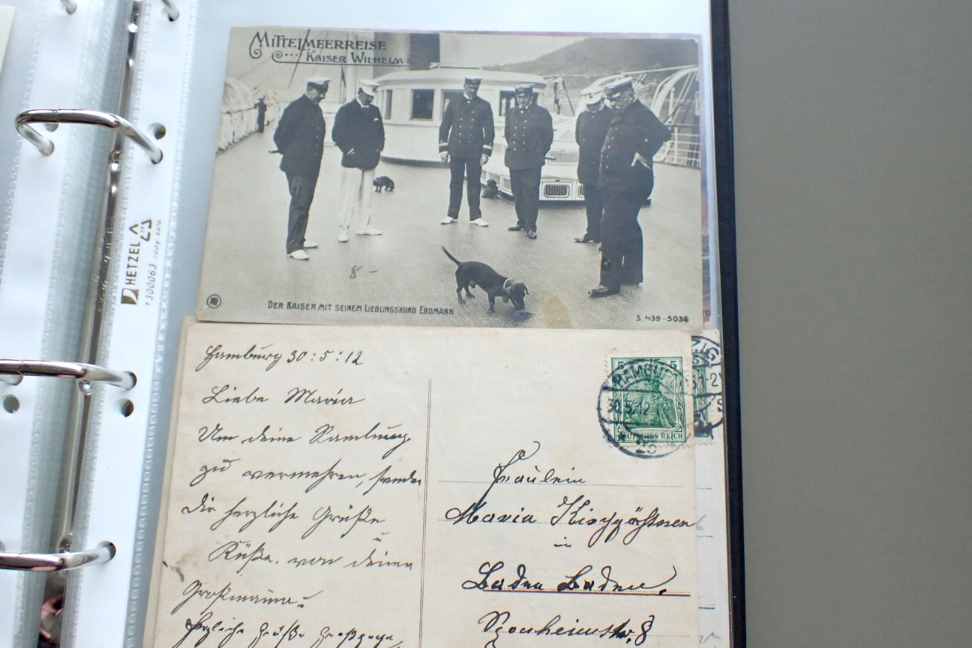 MITTELMEERREISE
KAISER WILHELM
8-
DER KAISER MIT SEINEM LIEBLINGSHUND ERDMANN
S. 439-5036
HETZEL
Hamburg 30:5:12
Liebe Maria
Um deine Samlung
zu vermehren, sende
dir herzliche Grüße
Küße. von deiner
Großmama.
Herzliche Grüße
HAMBURG
30.5.12
DEUTSCHES REICH
Fräulein
Maria
in
Baden Baden,